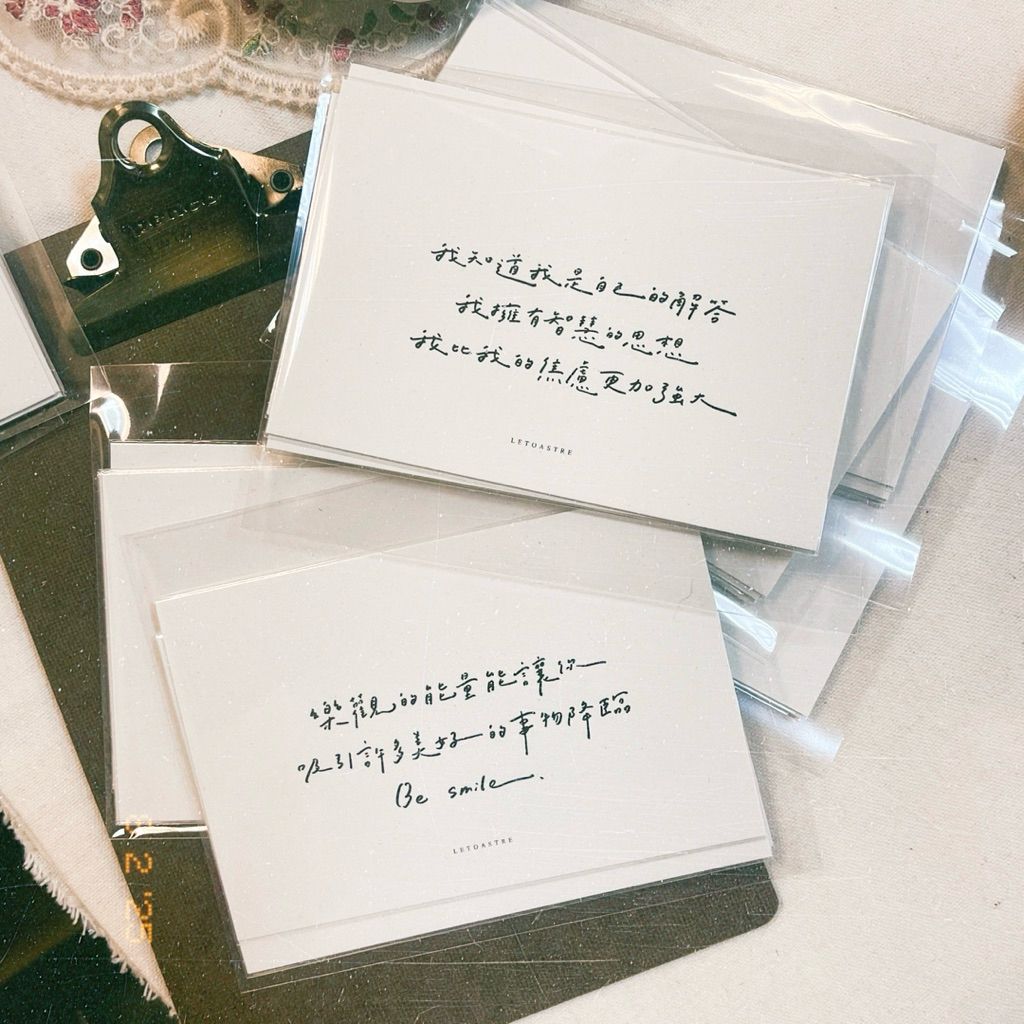 我知道我是自己的解答
我擁有智慧的思想
我比我的焦慮更加強大
LETOASTRE
樂觀的能量能讓你
吸引許多美好的事物降臨
Be smile.
LETOASTRE
3 2 '25